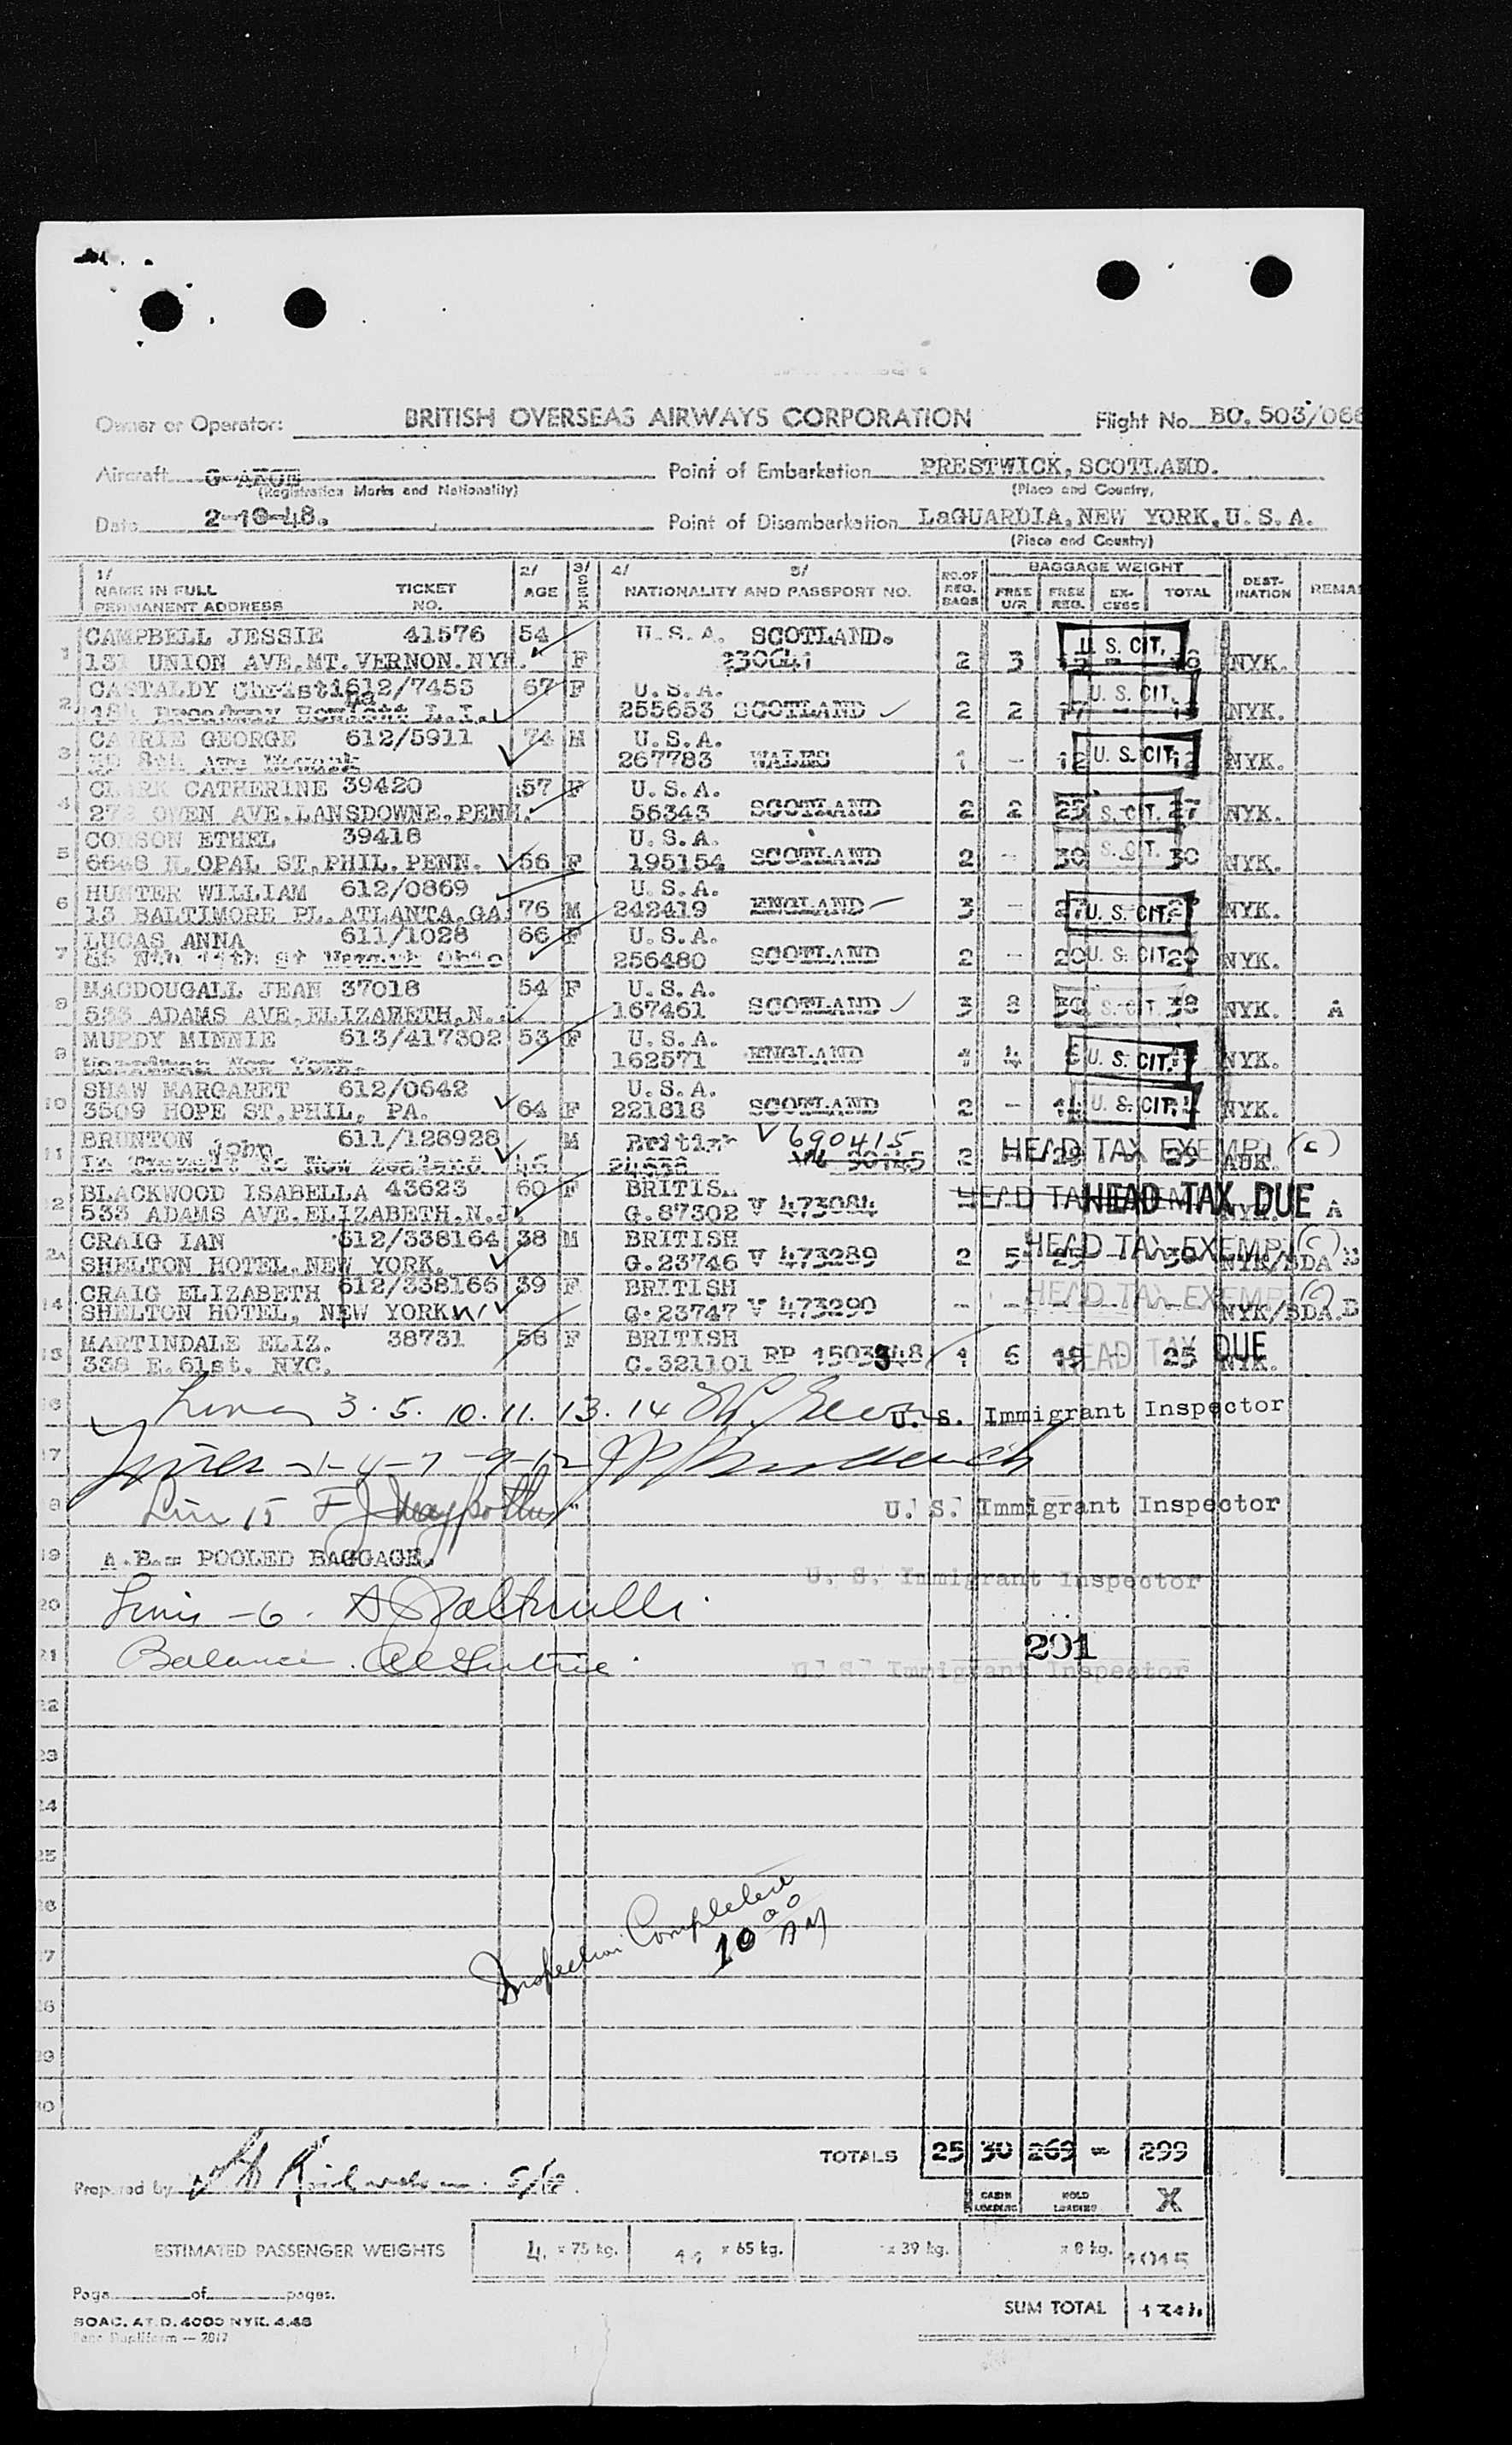 Owner or Operator: BRITISH OVERSEAS AIRWAYS CORPORATION Flight No. BO. 503/066
Aircraft Point of Embarkation PRESTWICK, SCOTLAND.
(Registration Marks and Nationality) (Place and Country)
Date 2-10-48. Point of Disembarkation LaGUARDIA, NEW YORK, U.S.A.
(Place and Country)
1/ NAME IN FULL PERMANENT ADDRESS TICKET NO. 2/ AGE 3/ SEX 4/ 5/ NATIONALITY AND PASSPORT NO. NO. OF REG. BAGS BAGGAGE WEIGHT FREE U/R FREE REG. EX-CESS TOTAL DEST-INATION REMA
1 CAMPBELL JESSIE 41576 54 U.S.A. SCOTLAND. U. S. CIT.
131 UNION AVE. MT. VERNON. NY. F 230641 2 3 NYK.
2 CASTALDY Christina 612/7453 67 F U.S.A. U. S. CIT.
L.I. 255653 SCOTLAND 2 2 17 - 19 NYK.
3 CARRIE GEORGE 612/5911 74 M U.S.A.
8th Ave Newark 267783 WALES 1 - 12 U. S. CIT. 12 NYK.
4 CLARK CATHERINE 39420 57 F U.S.A.
OVEN AVE. LANSDOWNE. PENN. 56343 SCOTLAND 2 2 25 S. CIT. 27 NYK.
5 CORSON ETHEL 39418 U.S.A.
6648 N. OPAL ST. PHIL. PENN. 56 F 195154 SCOTLAND 2 - 30 S. CIT. 30 NYK.
6 HUNTER WILLIAM 612/0869 U.S.A.
13 BALTIMORE PL. ATLANTA. GA. 76 M 242419 ENGLAND 3 - 27 U. S. CIT. 27 NYK.
7 LUCAS ANNA 611/1028 66 F U.S.A.
11th St Newark Ohio 256480 SCOTLAND 2 - 20 U. S. CIT. 20 NYK.
MACDOUGALL JEAN 37018 54 F U.S.A.
533 ADAMS AVE. ELIZABETH. N.J. 167461 SCOTLAND 3 8 30 S. CIT. 38 NYK. A
9 MURDY MINNIE 613/417302 53 F U.S.A.
New York. 162571 ENGLAND 1 4 U. S. CIT. NYK.
10 SHAW MARGARET 612/0642 U.S.A.
3509 HOPE ST. PHIL, PA. 64 F 221818 SCOTLAND 2 - 14 U. S. CIT. NYK.
11 BRUNTON John 611/128928 M British V 690415 HEAD TAX EXEMPT (c)
In Transit to New Zealand 46 24636 2 - 29 - 29 AUK.
12 BLACKWOOD ISABELLA 43623 60 F BRITISH HEAD TAX DUE
533 ADAMS AVE. ELIZABETH. N.J. G.87302 V 473084 NYK. A
CRAIG IAN 612/338164 38 M BRITISH HEAD TAX EXEMPT (c)
SHELTON HOTEL. NEW YORK. G.23746 V 473289 2 5 25 - 30 NYK/BDA B
14 CRAIG ELIZABETH 612/338166 39 F BRITISH HEAD TAX EXEMPT
SHELTON HOTEL, NEW YORK G.23747 V 473290 - - - - - NYK/BDA. B
15 MARTINDALE ELIZ. 38731 56 F BRITISH HEAD TAX DUE
338 E. 61st. NYC. C.321101 RP 1 6 19 - 25 NYK.
16 Lines 3. 5. 10. 11. 13. 14 U. S. Immigrant Inspector
17 Lines
Line 15 U. S. Immigrant Inspector
19 A.B.= POOLED BAGGAGE.
U. S. Immigrant Inspector
20 Lines - 6.
201
21 Balance. U. S. Immigrant Inspector
22
23
24
25
26
Inspection Completed
10 00 AM
27
28
29
30
TOTALS 25 30 269 - 299
Prepared by
CABIN LOADING HOLD LOADING X
ESTIMATED PASSENGER WEIGHTS 4 x 75 kg. 11 x 65 kg. x 39 kg. x 8 kg. 1015
Page of pages.
SUM TOTAL 1314
BOAC. AT.D. 4000 NYK. 4.48